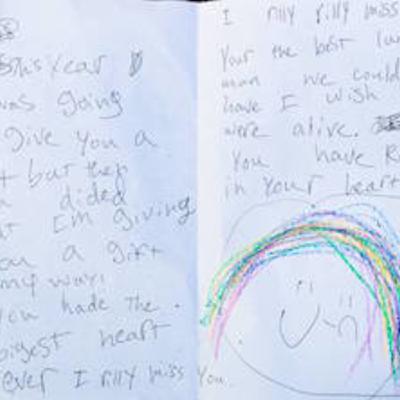 this year
was going
give you a
but then
dided
I'm giving
a gift
my way!
you hade the .
biggest heart
ever I rilly miss you.
I rilly rilly miss
Your the best
man we could
have I wish
were alive.
You have
in your heart